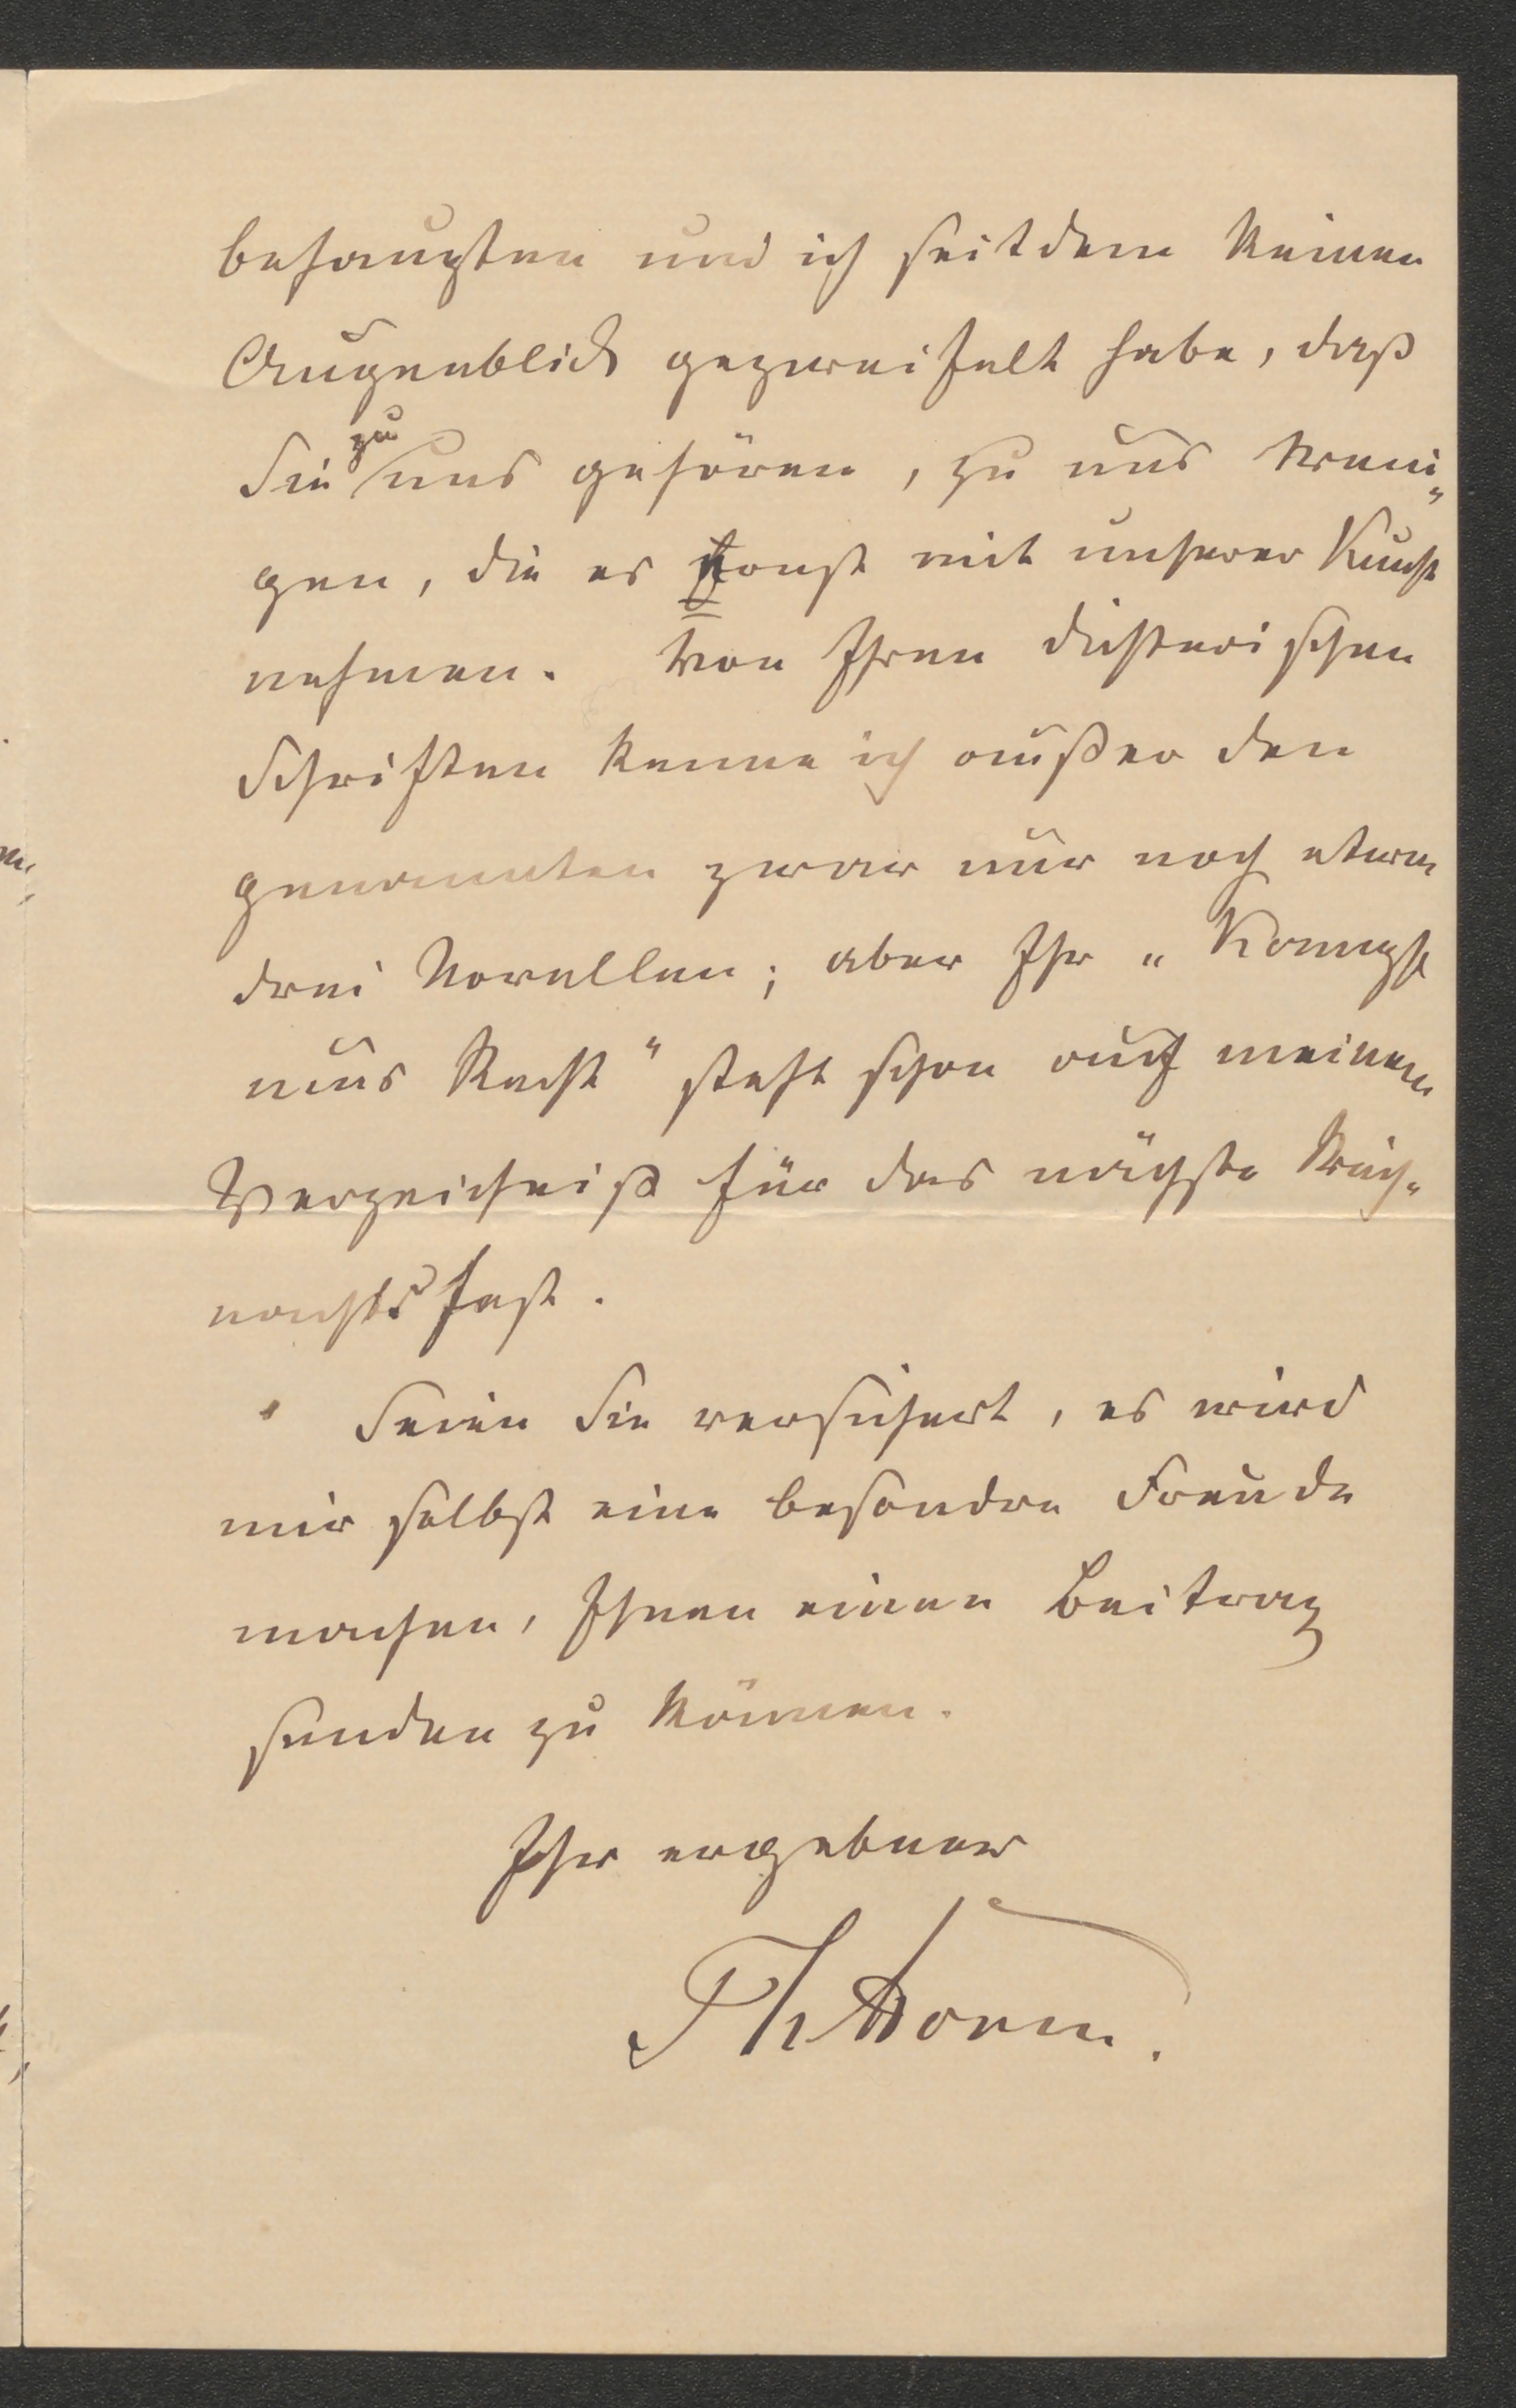 behaupten und ich seitdem keinen
Augenblick gezweifelt habe, daß
Sie zu uns gehören, zu uns Weni-
gen, die es ernst mit unserer Kunst
nehmen. Von Ihren dichterischen
Schriften kenne ich außer den
genannten zwar nur noch etwa
drei Novellen; aber Ihr „Kampf
ums Recht" steht schon auf meinem
Verzeichniß für das nächste Weih-
nachtsfest.
Seien Sie versichert, es wird
mir selbst eine besondre Freude
machen, Ihnen einen Beitrag
senden zu können.
Ihr ergebner
ThStorm.